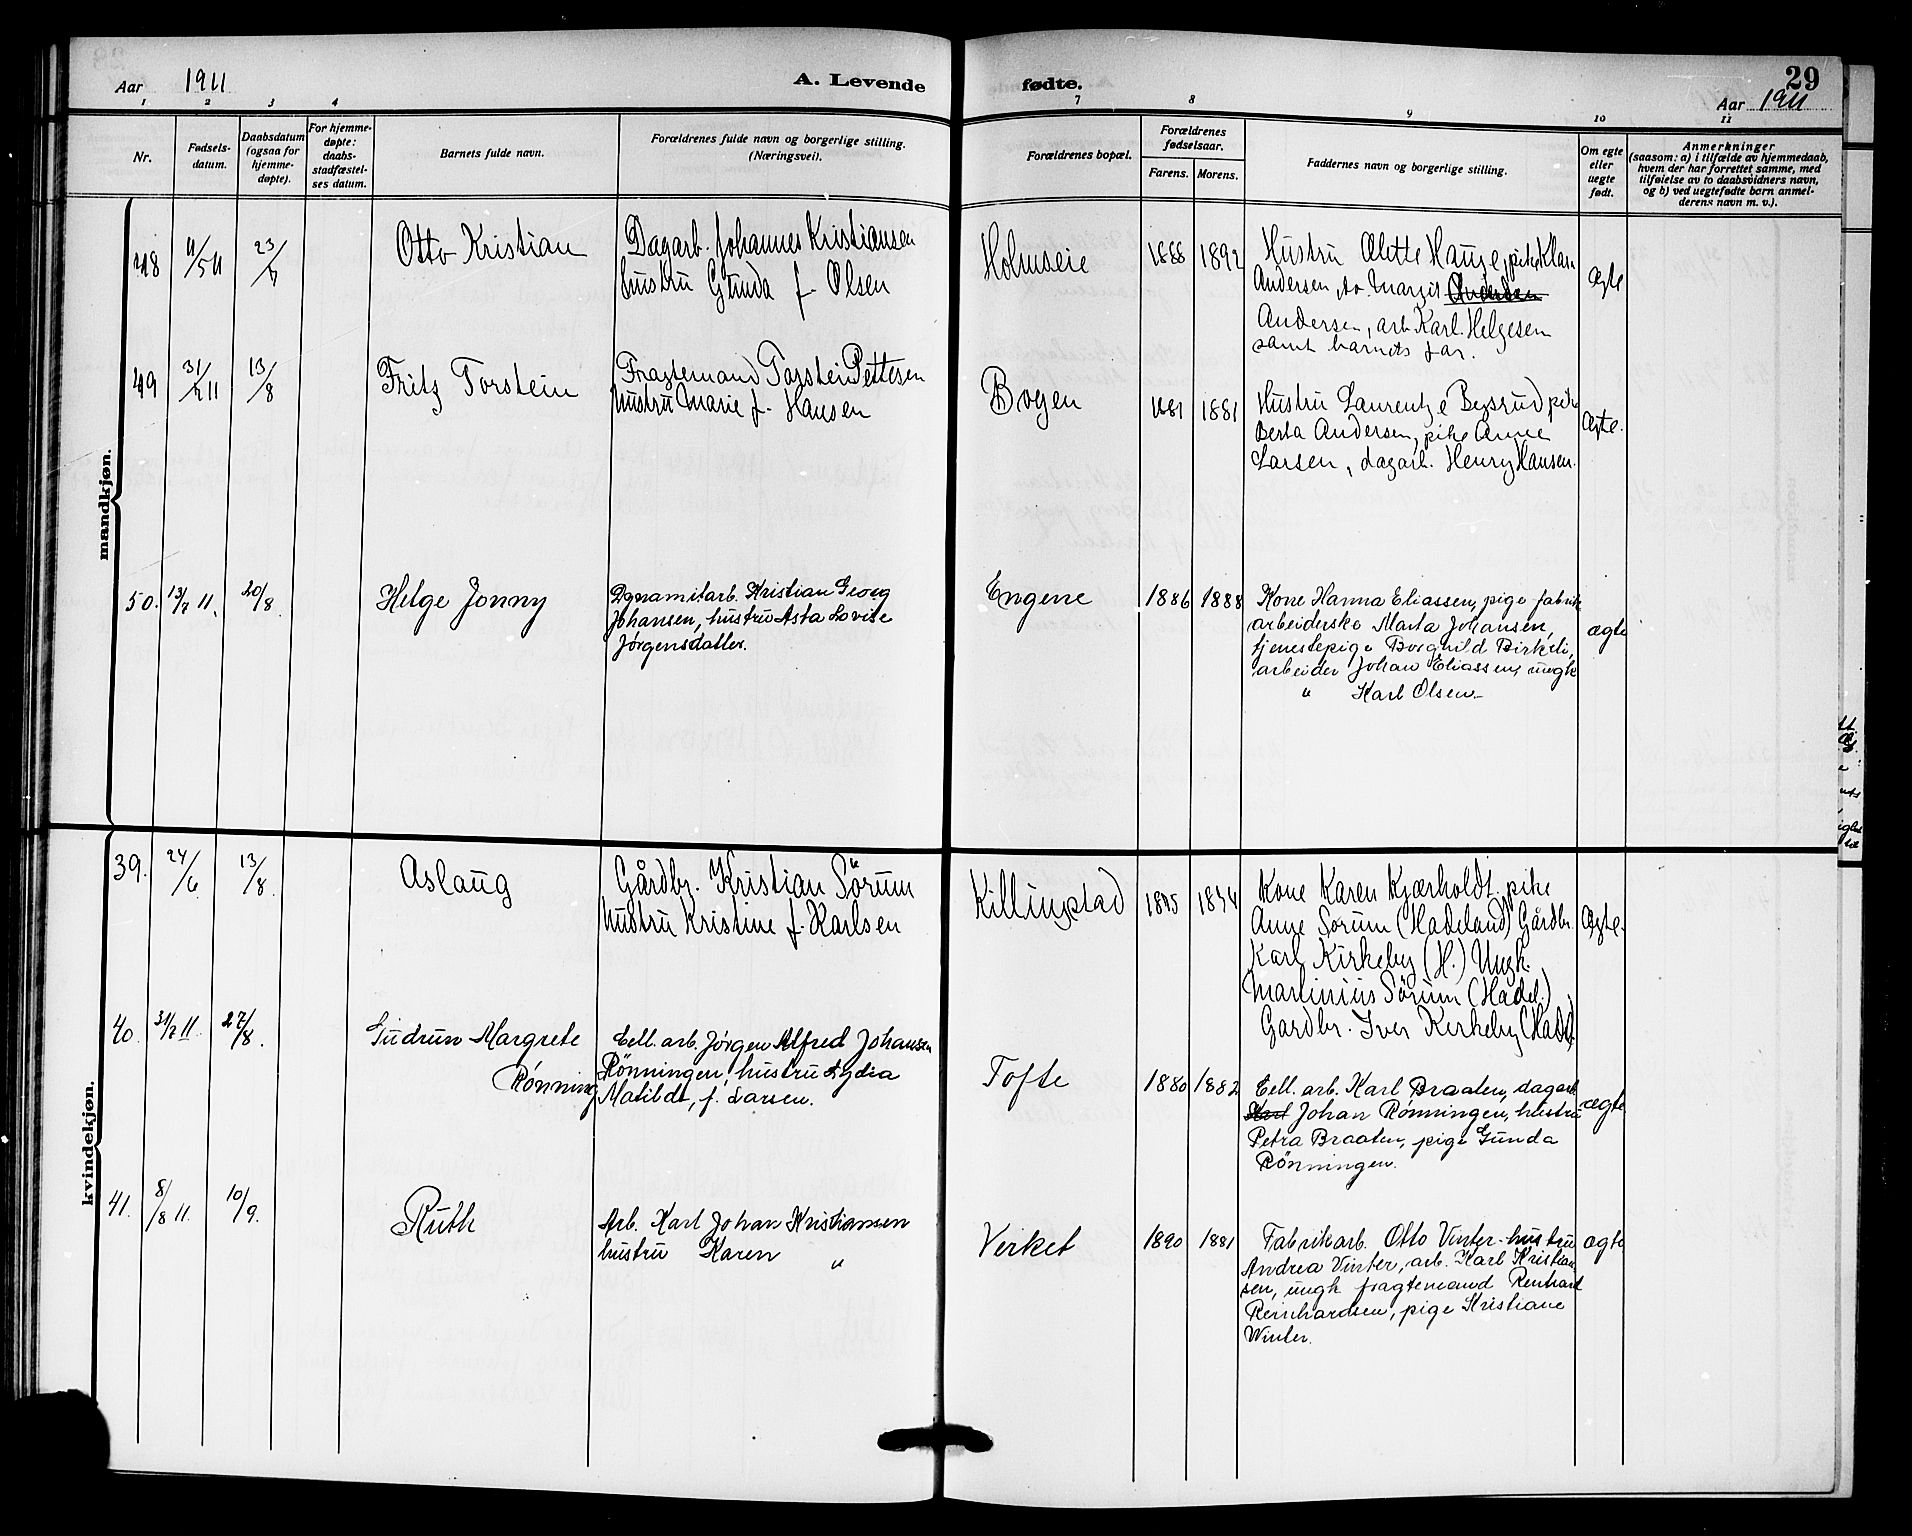 Aar 1911
A. Levende
fødte.
29
Aar 1911
1 2 3 4
7 8 9 10 11
Nr.
Fødsels-
datum.
Daabsdatum
(ogsaa for
hjemme-
døpte).
For hjemme-
døpte:
daabs-
stadfæstel-
ses datum.
Barnets fulde navn.
Forældrenes fulde navn og borgerlige stilling.
(Næringsvei).
Forældrenes bopæl.
Forældrenes
fødselsaar.
Farens. Morens.
Faddernes navn og borgerlige stilling.
Om egte
eller
uegte
født.
Anmerkninger
(saasom: a) i tilfælde av hjemmedaab,
hvem der har forrettet samme, med
tilføielse av to daabsvidners navn,
og b) ved uegtefødte barn anmel-
derens navn m. v.).
mandkjøn.
48
23/
Otto Kristian
Dagarb. Johannes Kristiansen
hustru Gunda f. Olsen
Holmseie
1888 1892
Hustru Alette Hauge, pike Klara
Andersen, Margit Andersen
Andersen, arb. Karl Helgesen
samt barnets far.
Ægte
49
31/7 11
13/8
Fritz Torstein
Fragtemand Torstein Pettesen
hustru Marie f. Hansen
Bogen
1881 1881
Hustru Laurentze Bersrud pike
Berta Andersen, pike Anne
Larsen, dagarb. Henry Hansen.
Ægte.
50. 13/7 11. 20/8.
Helge Jonny
Dynamitarb. Kristian Georg
Johansen, hustru Asta Lovise
Jørgensdatter.
Engene
1886 1888
Kone Hanna Eliassen, pige fabrik
arbeiderske Marta Johansen,
tjenestepige Borghild Birkeli,
arbeider Johan Eliassen, ungk
" Karl Olsen.
ægte
kvindekjøn.
39. 24/6 13/8
Aslaug
Gårdbr. Kristian Sörum
hustru Kristine f. Karlsen
Killingstad
Kone Karen Kjærholdt. pike
Anne Sørum (Hadeland) Gårdbr.
Karl Kirkeby (H.) Ungk.
Martinius Sørum (Hadel.)
Gardbr. Iver Kirkeby (Hadl.)
Ægte.
40. 31/7 11. 27/8.
Gudrun Margrete
Rønning
Cell. arb. Jørgen Alfred Johansen
Rønningen, hustru Lydia
Matildt, f. Larsen.
Tofte
1880 1882
Cell. arb. Karl Braaten, dagarb
Karl Johan Rønningen, hustru
Petra Braaten, pige Gunda
Rønningen.
ægte
41. 8/8 11. 10/9.
Ruth
Arb. Karl Johan Kristiansen
hustru Karen "
Verket
1890 1881
Fabrikarb. Otto Vinter, hustru
Andrea Vinter, arb. Karl Kristian-
sen, ungk fragtemand Renhard
Reinhardsen, pige Kristiane
Winter.
ægte